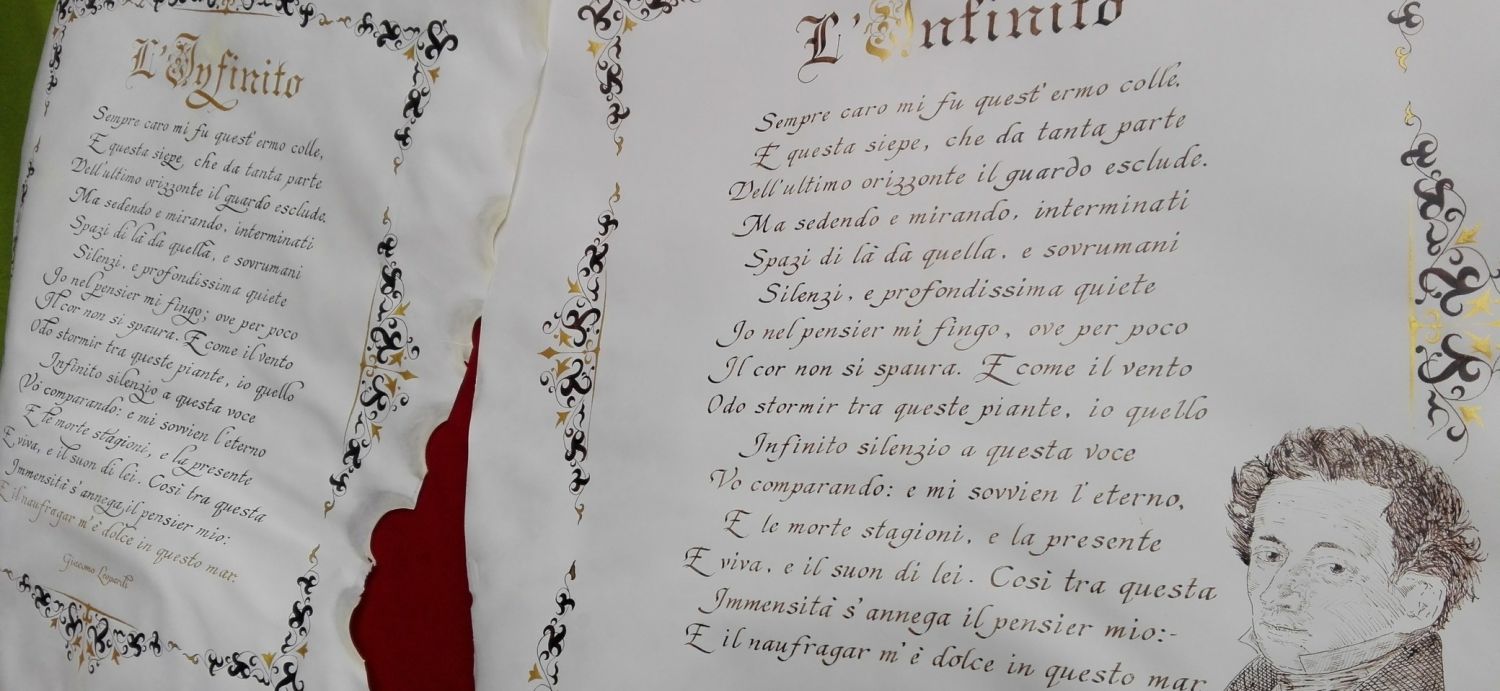 L'Infinito
Sempre caro mi fu quest' ermo colle,
E questa siepe, che da tanta parte
Dell'ultimo orizzonte il guardo esclude.
Ma sedendo e mirando, interminati
Spazi di là da quella, e sovrumani
Silenzi, e profondissima quiete
Io nel pensier mi fingo; ove per poco
Il cor non si spaura. E come il vento
Odo stormir tra queste piante, io quello
Infinito silenzio a questa voce
Vò comparando: e mi sovvien l'eterno
E le morte stagioni, e la presente
E viva, e il suon di lei. Così tra questa
Immensità s'annega il pensier mio:
E il naufragar m'è dolce in questo mar.
Giacomo Leopardi
L'Infinito
Sempre caro mi fu quest' ermo colle,
E questa siepe, che da tanta parte
Dell'ultimo orizzonte il guardo esclude.
Ma sedendo e mirando, interminati
Spazi di là da quella, e sovrumani
Silenzi, e profondissima quiete
Io nel pensier mi fingo, ove per poco
Il cor non si spaura. E come il vento
Odo stormir tra queste piante, io quello
Infinito silenzio a questa voce
Vo comparando: e mi sovvien l'eterno,
E le morte stagioni, e la presente
E viva, e il suon di lei. Così tra questa
Immensità s'annega il pensier mio:-
E il naufragar m'è dolce in questo mar